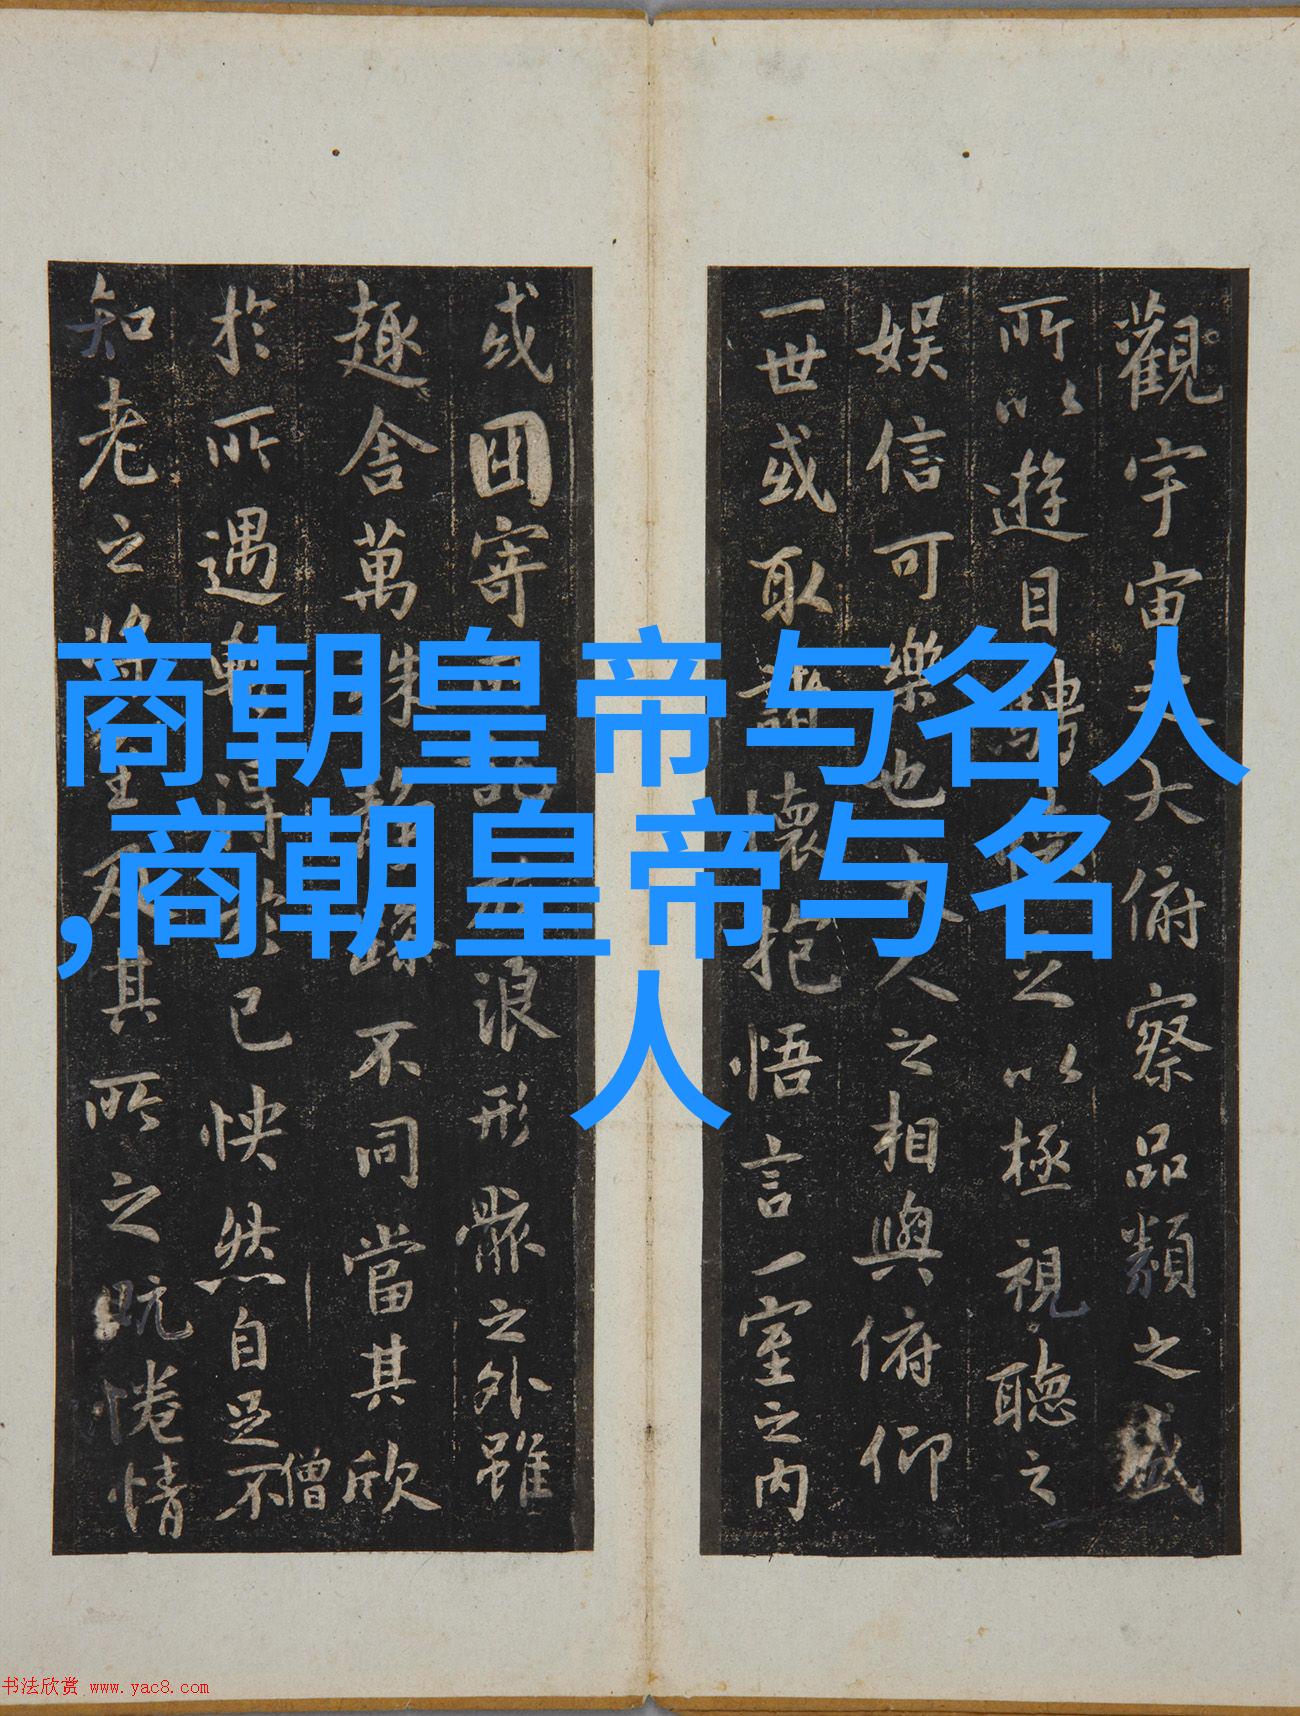 商朝皇帝与名人
,商朝皇帝与名
人
觀宇宙之大俯察品類之盛
所以遊目騁懷足以極視聽之
娛信可樂也夫人之相與俯仰
一世或取諸懷抱悟言一室之內
或因寄所託放浪形骸之外雖
趣舍萬殊靜躁不同當其欣
於所遇暫得於己怏然自足不
僧
知老之將至及其所之既惓情
书法欣赏 www.yac8.com